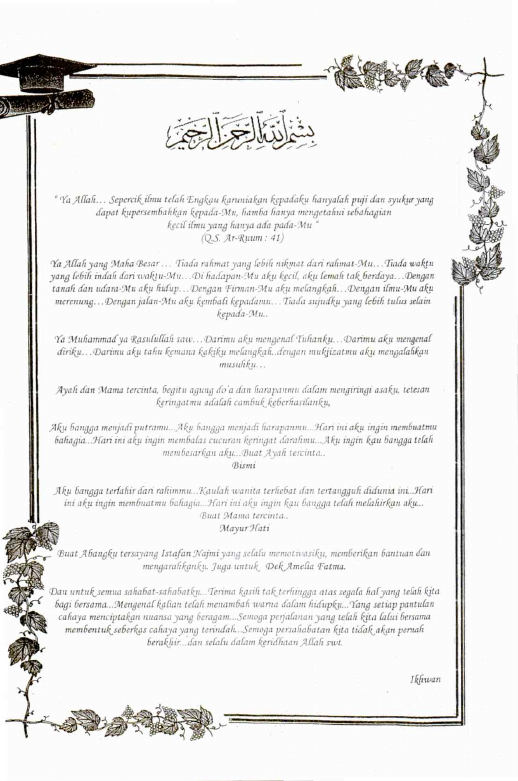 بسم الله الرحمن الرحيم
" Ya Allah… Sepercik ilmu telah Engkau karuniakan kepadaku hanyalah puji dan syukur yang
dapat kupersembahkan kepada-Mu, hamba hanya mengetahui sebahagian
kecil ilmu yang hanya ada pada-Mu "
(Q.S. Ar-Ruum : 41)
Ya Allah yang Maha Besar … Tiada rahmat yang lebih nikmat dari rahmat-Mu…Tiada waktu
yang lebih indah dari waktu-Mu…Di hadapan-Mu aku kecil, aku lemah tak berdaya…Dengan
tanah dan udara-Mu aku hidup…Dengan Firman-Mu aku melangkah…Dengan ilmu-Mu aku
merenung…Dengan jalan-Mu aku kembali kepadamu…Tiada sujudku yang lebih tulus selain
kepada-Mu..
Ya Muhammad ya Rasulullah saw…Darimu aku mengenal Tuhanku…Darimu aku mengenal
diriku…Darimu aku tahu kemana kakiku melangkah..dengan mukjizatmu aku mengalahkan
musuhku…
Ayah dan Mama tercinta, begitu agung do'a dan harapanmu dalam mengiringi asaku, tetesan
keringatmu adalah cambuk keberhasilanku,
Aku bangga menjadi putramu...Aku bangga menjadi harapanmu...Hari ini aku ingin membuatmu
bahagia...Hari ini aku ingin membalas cucuran keringat darahmu...Aku ingin kau bangga telah
membesarkan aku...Buat Ayah tercinta..
Bismi
Aku bangga terlahir dari rahimmu...Kaulah wanita terhebat dan tertangguh didunia ini...Hari
ini aku ingin membuatmu bahagia...Hari ini aku ingin kau bangga telah melahirkan aku...
Buat Mama tercinta..
Mayur Hati
Buat Abangku tersayang Istafan Najmi yang selalu memotivasiku, memberikan bantuan dan
mengarahkanku. Juga untuk Dek Amelia Fatma.
Dan untuk semua sahabat-sahabatku...Terima kasih tak terhingga atas segala hal yang telah kita
bagi bersama...Mengenal kalian telah menambah warna dalam hidupku...Yang setiap pantulan
cahaya menciptakan nuansa yang beragam...Semoga perjalanan yang telah kita lalui bersama
membentuk seberkas cahaya yang terindah...Semoga persahabatan kita tidak akan pernah
berakhir...dan selalu dalam keridhaan Allah swt.
Ikhwan